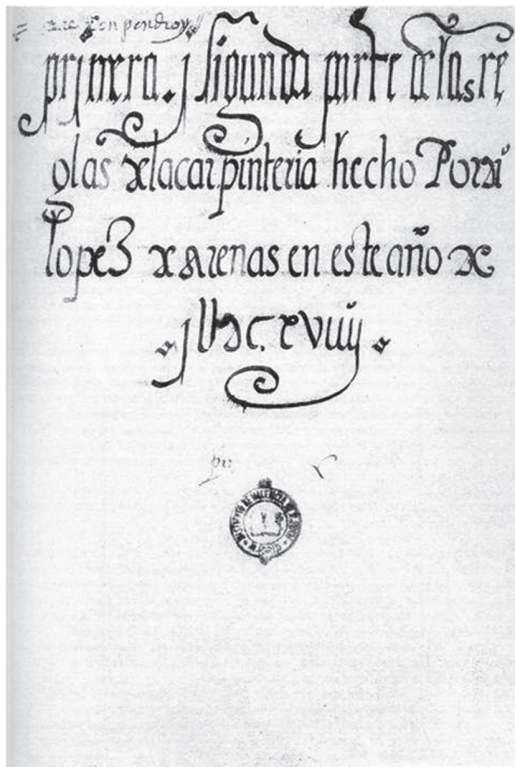 prjmera. j sigunda parte delas re
glas de lacarpinteria hecho Por di
lopez de arenas en este año de
.jUDC.xviiij.